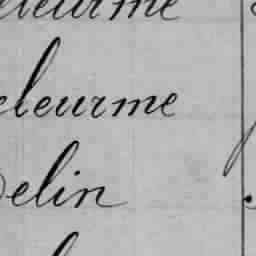 eleurme
eleurme
Delin